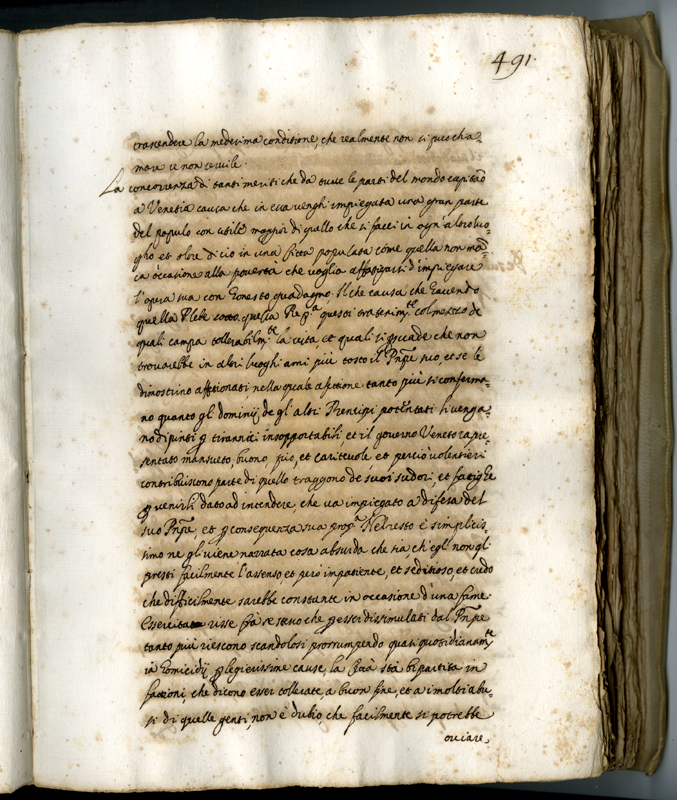 491.
trascendere la medesima conditione, che realmente non si può chia=
mare se non servile.
La concorrenza di tanti che da tutte le parti del mondo capitão
a Venetia causa che in essa venghi impiegata una gran parte
del populo con utile maggior di quello che si facci in ogn'altro luo=
gho et oltre di ciò in una Città populata come quella non mã=
ca occasione alla povertà che voglia affatigarsi d'impiegare
l'opera sua con honesto guadagno. Il che causa che havendo
quella Plebe sotto questi trattenim.ti col mezzo de
quali campa tollerabilm.te la vita, et quali si persuade che non
trovarebbe in altri luoghi ami più tosto il Pnpe suo, et se le
dimostrino affetionati nella quale afetione tanto più si conferma=
no quanto gl dominij de gl'altri Prencipi potentati li venga=
no dipinti p tirannici insopportabili, et il governo Veneto rapre=
sentato mansueto, buono, pio, et caritevole et perciò volentieri
contribuiscono parte di quello traggono de suoi sudori, et fatighe
p venirli dato ad intendere, che va impiegato a difesa del
suo Pnpe, et p consequenza sua prop.a Nel resto è simplicis=
simo ne gl viene narrata cosa absurda che sia, ch'egl non gli
presti facilmente l'assenso, et però impatiente, et seditioso, et credo
che difficilmente sarebbe constante in occasione d'una fame.
Essercita risse frà se stesso che p esser dissimulati dal Pnpe
tanto più riescono scandolosi prorrumpendo quasi quotidianam.te
in homicidij p legierissime cause, la Città stà bipartita in
fattioni, che dicono esser collerate a buon fine, et a i molti abu=
si di quelle genti, non è dubio, che facilmente si potrebbe
oviare,